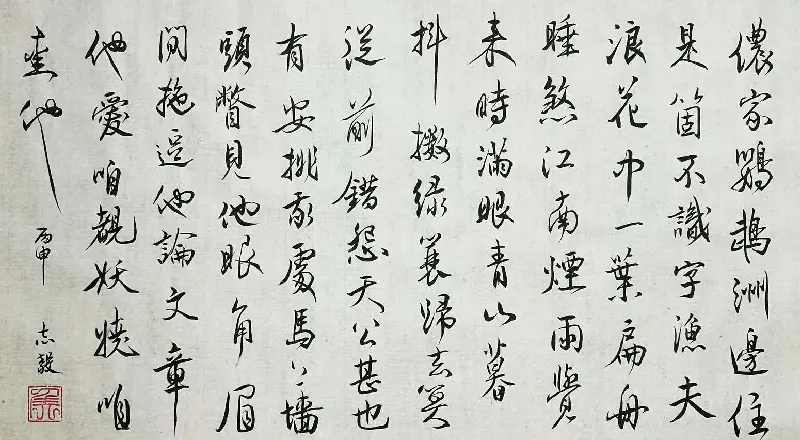 儂家鸚鵡洲邊住
是箇不識字漁夫
浪花中一葉扁舟
睡煞江南煙雨覺
来時滿眼青山暮
抖擻绿蓑歸去算
從前錯怨天公甚也
有安排我處馬上墻
頭瞥見他眼角眉
間拖逗他論文章
他愛咱覷妖嬈咱
爱他
丙申
志毅